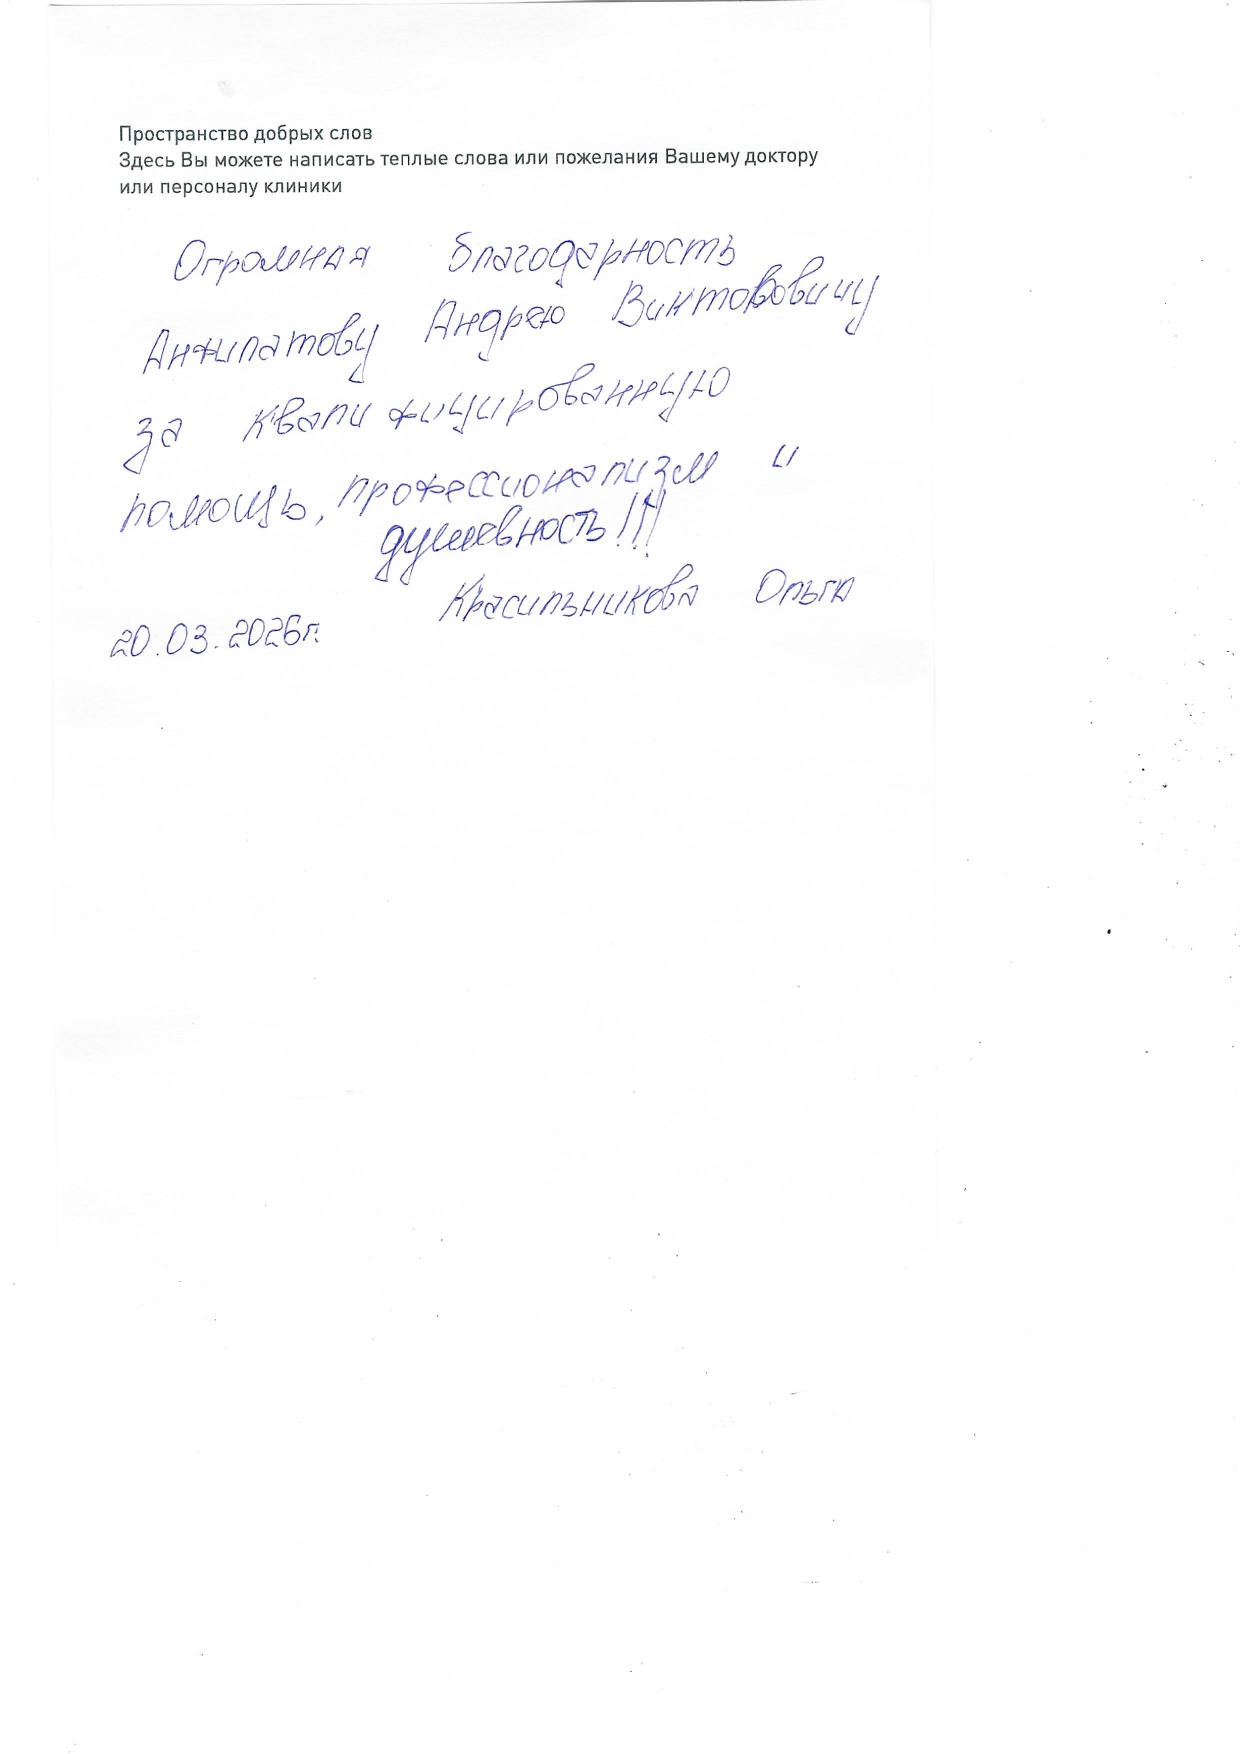 Пространство добрых слов
Здесь Вы можете написать теплые слова или пожелания Вашему доктору
или персоналу клиники
Огромная благодарность
Анфилатову Андрею Викторовичу
за квалифицированную
помощь, профессионализм и
душевность!!!
Красильникова Ольга
20.03.2026г.